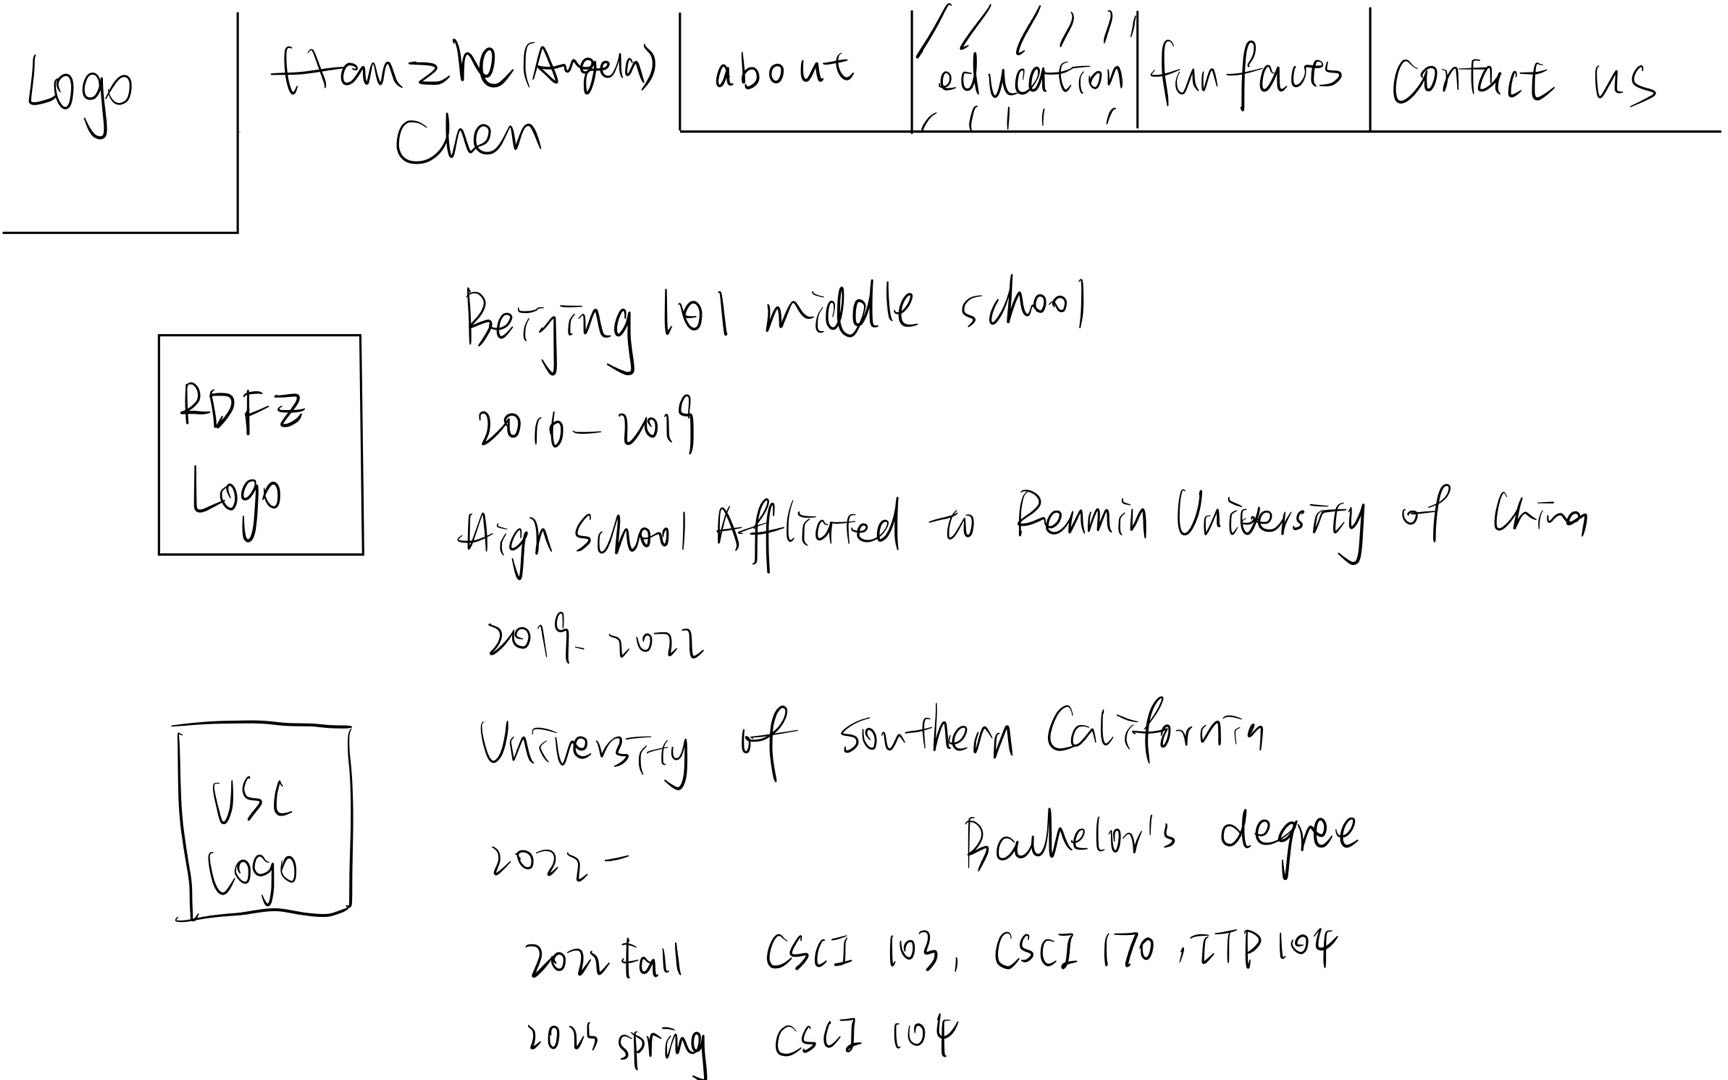 Logo
Hanzhe (Angela)
Chen
about
education
fun facts
contact us
Beijing 101 middle school
2016 - 2019
RDFZ
Logo
High School Affliated to Renmin University of China
2019 - 2022
University of southern California
USC
Logo
2022 -
Bachelor's degree
2022 Fall CSCI 103, CSCI 170, ITP 104
2023 spring CSCI 104